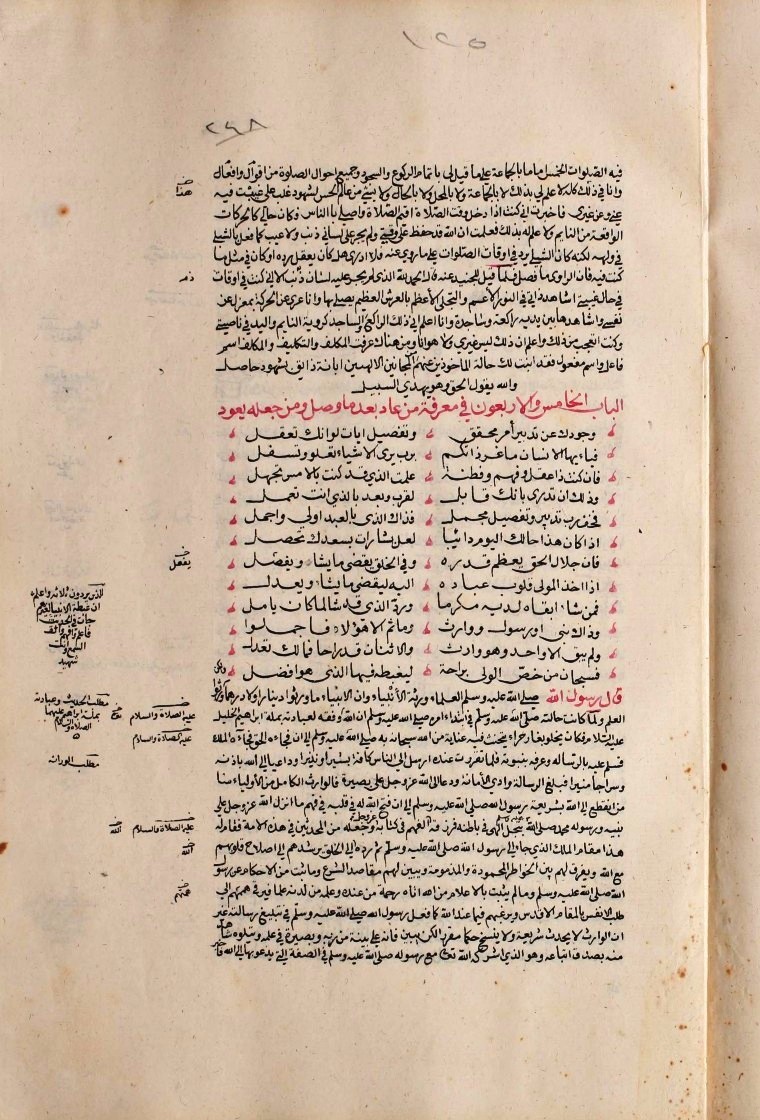 ١٢٥
٢٤٨
فيه الصلوات الخمس اماما بالجماعة على ما قيل لي باتمام الركوع والسجود وجميع احوال الصلوة من اقوال وافعال
وانا في ذلك كله لا علم لي بذلك لا بالجماعة ولا بالمحل ولا بالحال ولا بشئ من عالم الحس لشهود غلب علي غبت فيه
عني وعن غيري فاخبرت اني كنت اذا دخل وقت الصلاة اقيم الصلاة واصلي بالناس وكان حالي كالحركات
الواقعة من النايم ولا علم له بذلك فعلمت ان الله قد حفظ علي وقتي ولم يجر على لساني ذنب ولا عيب كما فعل بالشبلي
في ولهه لكنه كان الشبلي يرد في اوقات الصلوات على ما روي عنه فلا ادري هل كان يعقل رده او كان في مثل ما
كنت فيه فان الراوي ما فصل فلما قيل للجنيد عنه قال الحمد لله الذي لم يجر عليه لسان ذنب الا اني كنت في اوقات
في حال غيبتي اشاهد ذاتي في النور الاعم والتجلي الاعظم بالعرش العظيم يصلى بها وانا عري عن الحركة بمعزل عن
نفسي واشاهدها بين يديه راكعة وساجدة وانا اعلم اني ذلك الراكع والساجد كروية النايم واليد في ناصيتي
وكنت اتعجب من ذلك واعلم ان ذلك ليس غيري ولا هو انا ومن هناك عرفت المكلف والتكليف والمكلف اسم
فاعل واسم مفعول فقد ابنت لك حالة الماخوذين عنهم المجانين الالهيين ابانة ذايق بشهود حاصل
والله يقول الحق وهو يهدي السبيل
الباب الخامس والاربعون في معرفة من عاد بعد ما وصل ومن جعله يعود
وجودك عن تدبير أمر محقق وتفصيل ايات لو انك تعقل
فيا ءيها الانسان ما غر ذاتكم برب يرى الاشياء تعلو وتسفل
فان كنت ذا عقل وفهم وفطنة علمت الذي قد كنت بالامس تجهل
وذلك ان تدري بانك قابل لقرب وبعد بالذي انت تعمل
فخف رب تدبير وتفصيل مجمل فذاك الذي بالعبد اولى واجمل
اذا كان هذا حالك اليوم دائبا لعل بشارات بسعدك تحصل
فان جلال الحق يعظم قدره وفي الخلق يقضي ما يشاء ويفصل
اذا اخذ المولى قلوب عباده اليه ليقضي ما يشاء ويعدل
فمن شاء ابقاه لديه مكرما ورد الذي قد شا لما كان يامل
وذاك نبي او رسول ووارث وما ثم الا هؤلاء فاجملوا
ولم يبق الا واحد وهو وارث والاثنان قد راحا فما لك تعدل
فسبحان من خص الولي براحة ليغبطه فيها الذي هو افضل
قال رسول الله صلى الله عليه وسلم العلماء ورثة الأنبياء وان الانبياء ما ورثوا دينارا ولا درهما ورثوا
العلم ولما كانت حالته صلى الله عليه وسلم في ابتداء امره صلى الله عليه وسلم ان الله وفقه لعبادته بملة ابراهيم الخليل
عليه السلام فكان يخلو بغار حراء يتحنث فيه عناية من الله سبحانه به صلى الله عليه وسلم الى ان فجاءه الحق فجاءه الملك
فسلم عليه بالرسالة وعرفه بنبوته فلما تقررت عنده ارسل الى الناس كافة بشيرا ونذيرا وداعيا الى الله باذنه
وسراجا منيرا فبلغ الرسالة وادى الامانة ودعا الى الله عز وجل على بصيرة فالوارث الكامل من الأولياء منا
من انقطع الى الله بشريعة رسول الله صلى الله عليه وسلم الى ان فتح الله له في قلبه في فهم ما انزل الله عز وجل على
نبيه ورسوله محمد صلى الله عليه وسلم بتجل الهي في باطنه فرزقه الفهم في كتابه عز وجل وجعله من المحدثين في هذه الامة فقام له
هذا مقام الملك الذي جاء الى رسول الله صلى الله عليه وسلم ثم رده الى الخلق يرشدهم الى اصلاح قلوبهم
مع الله ويفرق لهم بين الخواطر المحمودة والمذمومة ويبين لهم مقاصد الشرع وما ثبت من الاحكام عن رسول
الله صلى الله عليه وسلم وما لم يثبت بالاعلام من الله اتاه رحمة من عنده وعلمه من لدنه علما فيرقي هممهم الى
طلب الانفس بالمقام الاقدس ويرغبهم فيما عند الله كما فعل رسول الله صلى الله عليه وسلم في تبليغ رسالته غير
ان الوارث لا يحدث شريعة ولا ينسخ حكما مقررا لكن يبين فانه على بينة من ربه وبصيرة في علمه ويتلوه شاهد
منه بصدق اتباعه وهو الذي اشركه الله تعالى مع رسوله صلى الله عليه وسلم في الصفة التي يدعو بها الى الله فاخبر
هذا
يفعل
مطلب الحديث وعبادته
بملة ابراهيم عليهما
الصلاة والسلام
عليه الصلاة والسلام
عليه الصلاة والسلام
مطلب الوراث
عليه الصلاة والسلام
الله
الله
هممهم